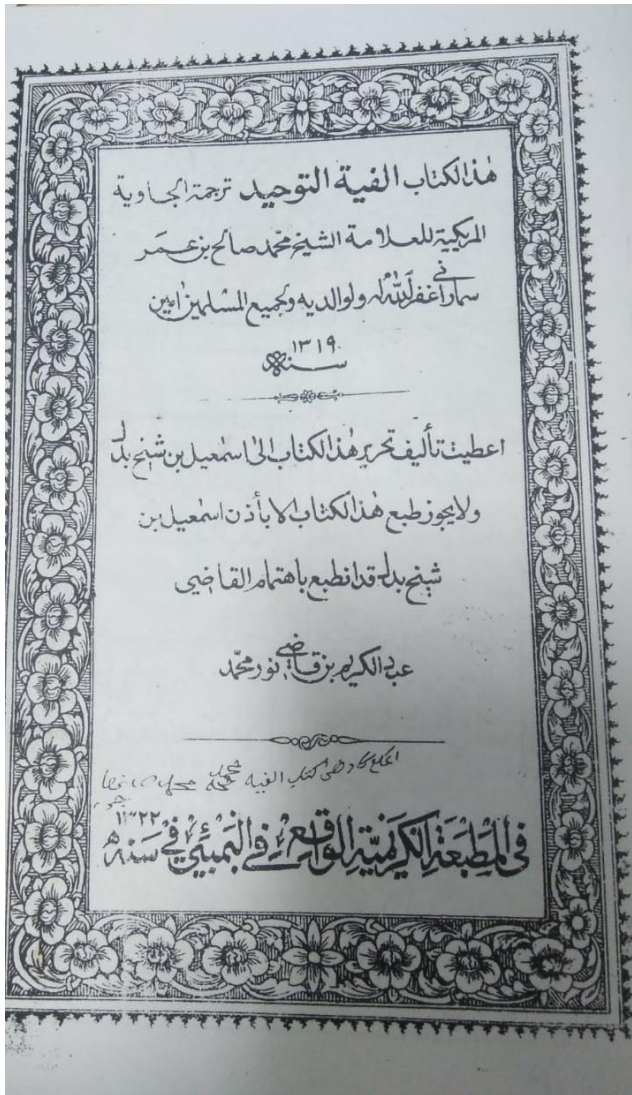 هذا الكتاب الفية التوحيد ترجمة الجاوية
المريكية للعلامة الشيخ محمد صالح بن عمر
سماراني غفر الله له ولوالديه ولجميع المسلمين امين
سنه ١٣١٩
اعطيت تأليف تحرير هذا الكتاب الى اسمعيل بن شيخ بدل
ولا يجوز طبع هذا الكتاب الا بأذن اسمعيل بن
شيخ بدل قد انطبع باهتمام القاضي
عبد الكريم بن قاضي نور محمد
كتاب الفية
في المطبعة الكريمية الواقع في البمبئي في سنه